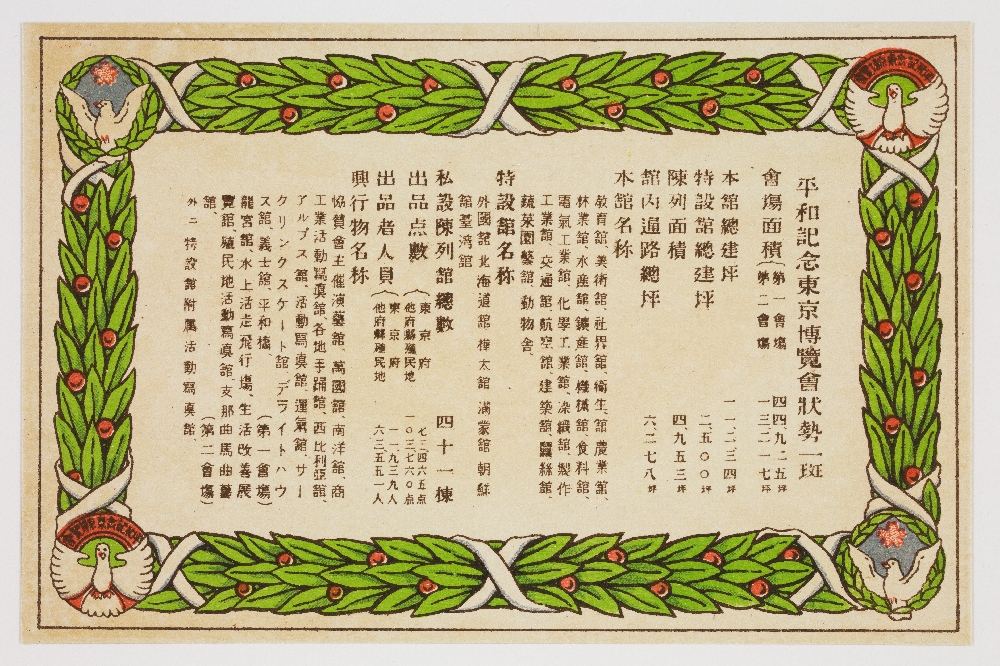 平和記念東京博覽會狀勢一斑
會場面積（第一會場 四四、九二五坪
第二會場 一三、二一七坪
本館總建坪 一一、二三四坪
特設館總建坪 二、五〇〇坪
陳列面積 四、九五三坪
館內通路總坪 六、二七八坪
本館名称
教育館、美術館、社界館、衛生館、農業館、
林業館、水産館、鑛産館、機械館、食料館、
電氣工業館、化學工業館、染織館、製作
工業館、交通館、航空館、建築館、蠶絲館、
蔬菜園藝館、動物舍、
特設館名称
外國館、北海道館、樺太館、滿蒙館、朝鮮
館、臺湾館
私設陳列館總數 四十一棟
出品点數（東京府 七三、四六五点
他府縣殖民地 一〇三、七六〇点
出品者人員（東京府 一一、九三九人
他府縣殖民地 六三、五五一人
興行物名称
協賛會主催演藝館、萬國館、南洋館、商
工業活動寫眞館、各地手踊館、西比利亞館、
アルプス館、活動寫眞館、運氣館、サー
クリンクスケート館、デライトハウ
ス館、義士館、平和橋、（第一會場）
龍宮館、水上活走飛行場、生活改善展
覽館、殖民地活動寫眞館、支那曲馬曲藝
館、（第二會場）
外ニ 特設館附属活動寫眞館